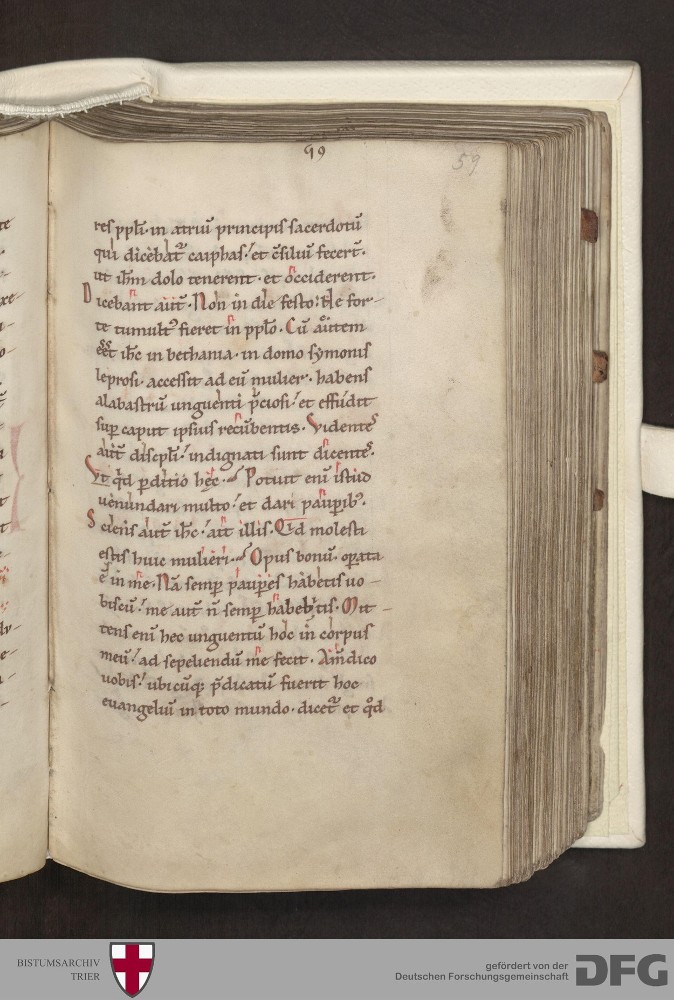 59
59
res ppłi· in atriū principis sacerdotū
qui dicebat᷑ caiphas· et c̄siliū fecerт̄·
ut ihm̄ dolo tenerent· et occiderent·
Dicebant aūt· Non in die festo· Ne for-
te tumult᷒ fieret in ppło· Cū autem
eēt ihc̄ in bethania· in domo symonis
leprosi· accessit ad eū mulier· habens
alabastrū unguenti p̄ciosi· et effudit
sup̱ caput ipsius recūbentis· Videntes
aūt discipłi· indignati sunt dicentes·
Vt qͥd p̱ditio hęc· Potuit enī istud
uenundari multo· et dari paup̱ib᷒·
Sciens aūt ihc̄· ait illis· Qid molesti
estis huic mulieri· Opus bonū· op̱ata
ē in me· Nā semp̱ paup̱es habetis uo-
biscū· me aut n̄ semp̱ habebitis· Mit-
tens enī hec unguentū hoc in corpus
meū· ad sepeliendū me fecit· Am̄dico
uobis· ubicūq; p̄dicatū fuerit hoc
euangeliū in toto mundo· dicet᷑ et qͦd
BISTUMSARCHIV
TRIER
gefördert von der
Deutschen Forschungsgemeinschaft
DFG